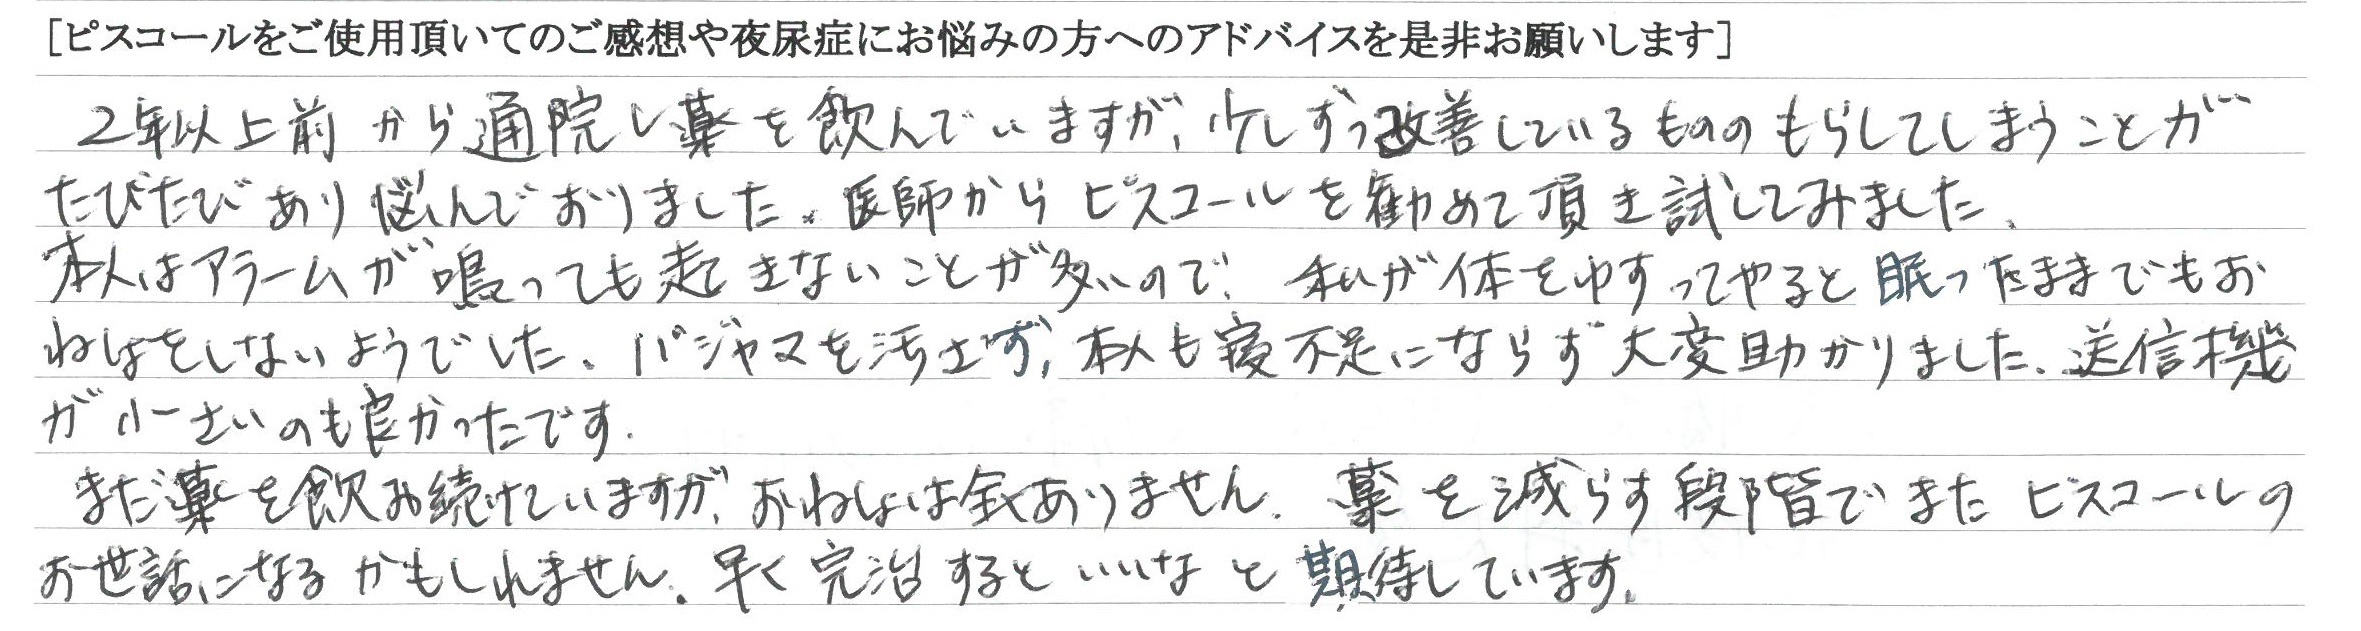 [ピスコールをご使用頂いてのご感想や夜尿症にお悩みの方へのアドバイスを是非お願いします]
2年以上前から通院し薬を飲んでいますが、少しずつ改善しているもののもらしてしまうことが
たびたびあり悩んでおりました。医師からピスコールを勧めて頂き試してみました。
本人はアラームが鳴っても起きないことが多いので、私が体をゆすってやると眠ったままでもお
ねしょをしないようでした。パジャマを汚さず、本人も寝不足にならず大変助かりました。送信機
が小さいのも良かったです。
まだ薬を飲み続けていますが、おねしょは全くありません。薬を減らす段階でまたピスコールの
お世話になるかもしれません。早く完治するといいなと期待しています。